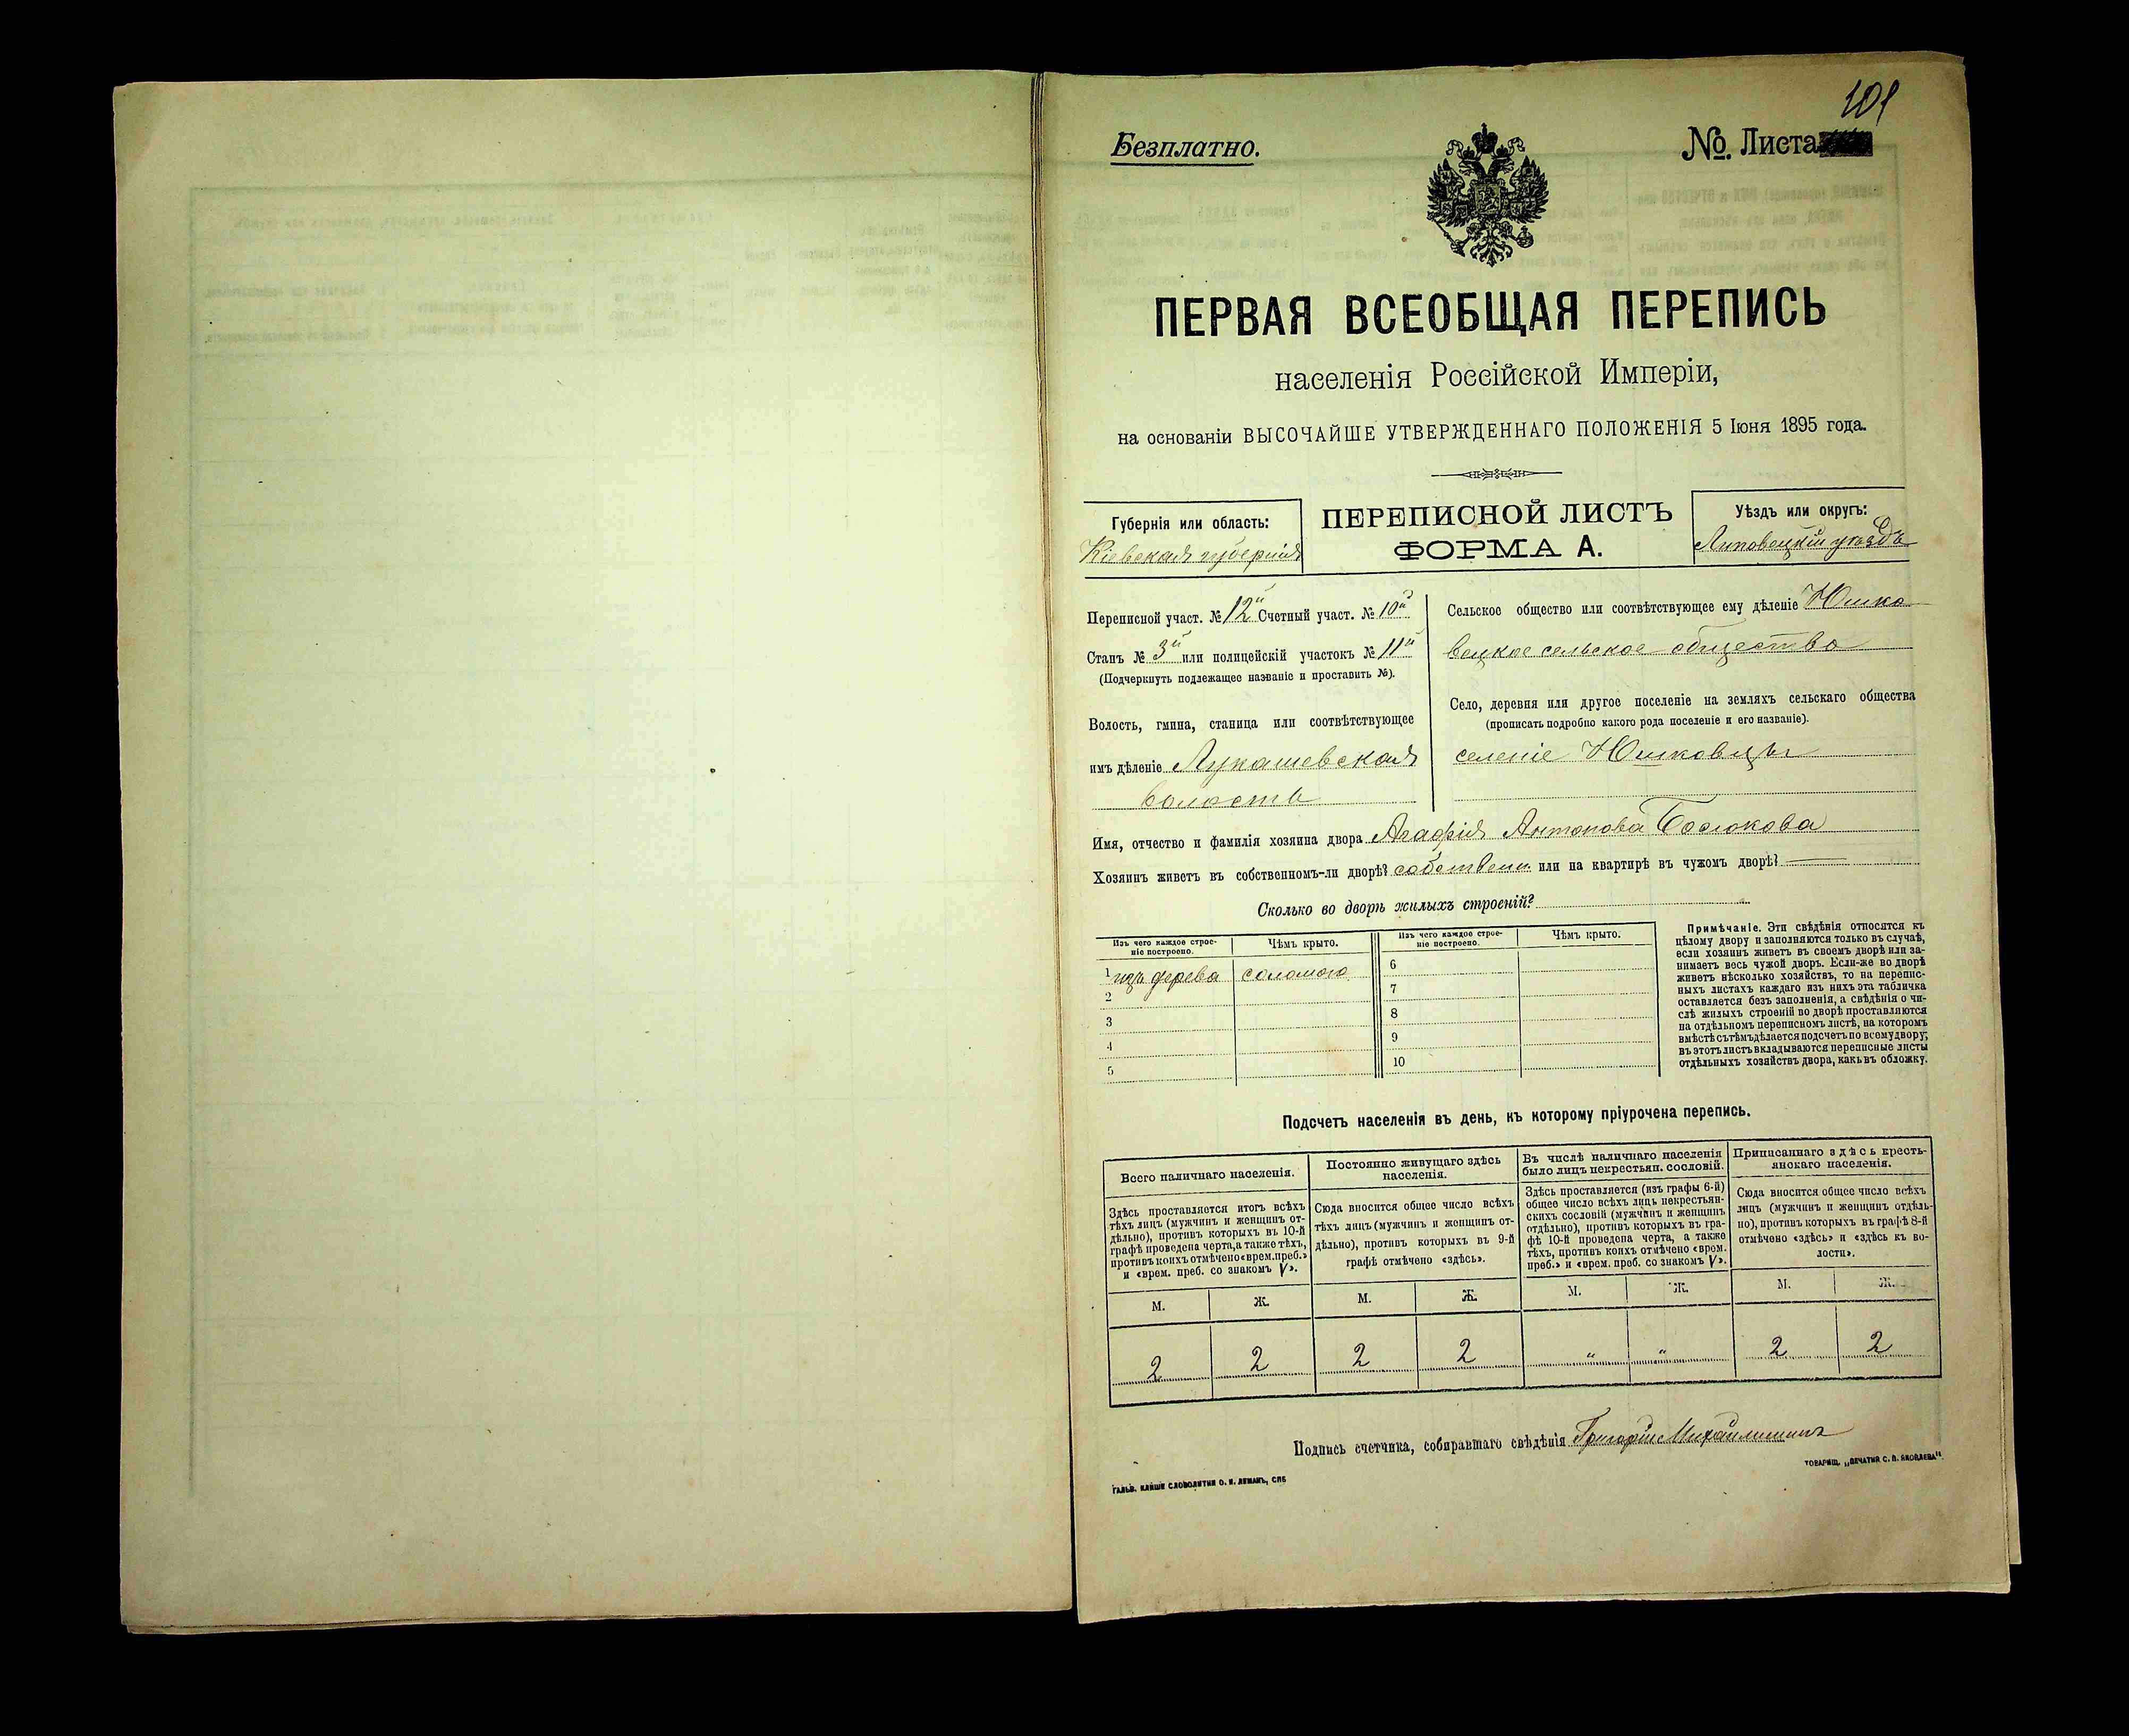 101
Безплатно.
№. Листа
ПЕРВАЯ ВСЕОБЩАЯ ПЕРЕПИСЬ
населенія Россійской Имперіи,
на основаніи ВЫСОЧАЙШЕ УТВЕРЖДЕННАГО ПОЛОЖЕНІЯ 5 Іюня 1895 года.
Губернія или область:
Кіевская губернія
ПЕРЕПИСНОЙ ЛИСТЪ
ФОРМА А.
Уѣздъ или округъ:
Липовецкій уѣздъ
Переписной участ. № 12й Счетный участ. № 10й
Станъ № 3й или полицейскій участокъ № 11й
(Подчеркнуть подлежащее названіе и проставить №).
Волость, гмина, станица или соотвѣтствующее
имъ дѣленіе Лукашевская
волость
Сельское общество или соотвѣтствующее ему дѣленіе Юшко
вецкое сельское общество
Село, деревня или другое поселеніе на земляхъ сельскаго общества
(прописать подробно какого рода поселеніе и его названіе).
селеніе Юшковцы
Имя, отчество и фамилія хозяина двора Агафія Антонова
Хозяинъ живетъ въ собственномъ-ли дворѣ? собствен или на квартирѣ въ чужомъ дворѣ? —
Сколько во дворѣ жилыхъ строеній?
Изъ чего каждое строе-
ніе построено.
Чѣмъ крыто.
Изъ чего каждое строе-
ніе построено.
Чѣмъ крыто.
1 изъ дерева соломою
2
3
4
5
6
7
8
9
10
Примѣчаніе. Эти свѣдѣнія относятся къ
цѣлому двору и заполняются только въ случаѣ,
если хозяинъ живетъ въ своемъ дворѣ или за-
нимаетъ весь чужой дворъ. Если-же во дворѣ
живетъ нѣсколько хозяйствъ, то на перепис-
ныхъ листахъ каждаго изъ нихъ эта табличка
оставляется безъ заполненія, а свѣдѣнія о чи-
слѣ жилыхъ строеній во дворѣ проставляются
на отдѣльномъ переписномъ листѣ, на которомъ
вмѣстѣ съ тѣмъ дѣлается подсчетъ по всему двору;
въ этотъ листъ вкладываются переписные листы
отдѣльныхъ хозяйствъ двора, какъ въ обложку.
Подсчетъ населенія въ день, къ которому пріурочена перепись.
Всего наличнаго населенія.
Здѣсь проставляется итогъ всѣхъ
тѣхъ лицъ (мужчинъ и женщинъ от-
дѣльно), противъ которыхъ въ 10-й
графѣ проведена черта, а также тѣхъ,
противъ коихъ отмѣчено «врем. преб.»
и «врем. преб. со знакомъ V».
Постоянно живущаго здѣсь
населенія.
Сюда вносится общее число всѣхъ
тѣхъ лицъ (мужчинъ и женщинъ от-
дѣльно), противъ которыхъ въ 9-й
графѣ отмѣчено «здѣсь».
Въ числѣ наличнаго населенія
было лицъ некрестьян. сословій.
Здѣсь проставляется (изъ графы 6-й)
общее число всѣхъ лицъ некрестьян-
скихъ сословій (мужчинъ и женщинъ
отдѣльно), противъ которыхъ въ гра-
фѣ 10-й проведена черта, а также
тѣхъ, противъ коихъ отмѣчено «врем.
преб.» и «врем. преб. со знакомъ V».
Приписаннаго здѣсь кресть-
янскаго населенія.
Сюда вносится общее число всѣхъ
лицъ (мужчинъ и женщинъ отдѣль-
но), противъ которыхъ въ графѣ 8-й
отмѣчено «здѣсь» и «здѣсь къ во-
лости».
М. Ж. М. Ж. М. Ж. М. Ж.
2 2 2 2 " " 2 2
Подпись счетчика, собиравшаго свѣдѣнія Григорій
ГАЛЬВ. КЛИШЕ СЛОВОЛИТНИ О. И. ЛЕМАНЪ, СПБ
ТОВАРИЩ. „ПЕЧАТНЯ С. П. ЯКОВЛЕВА".